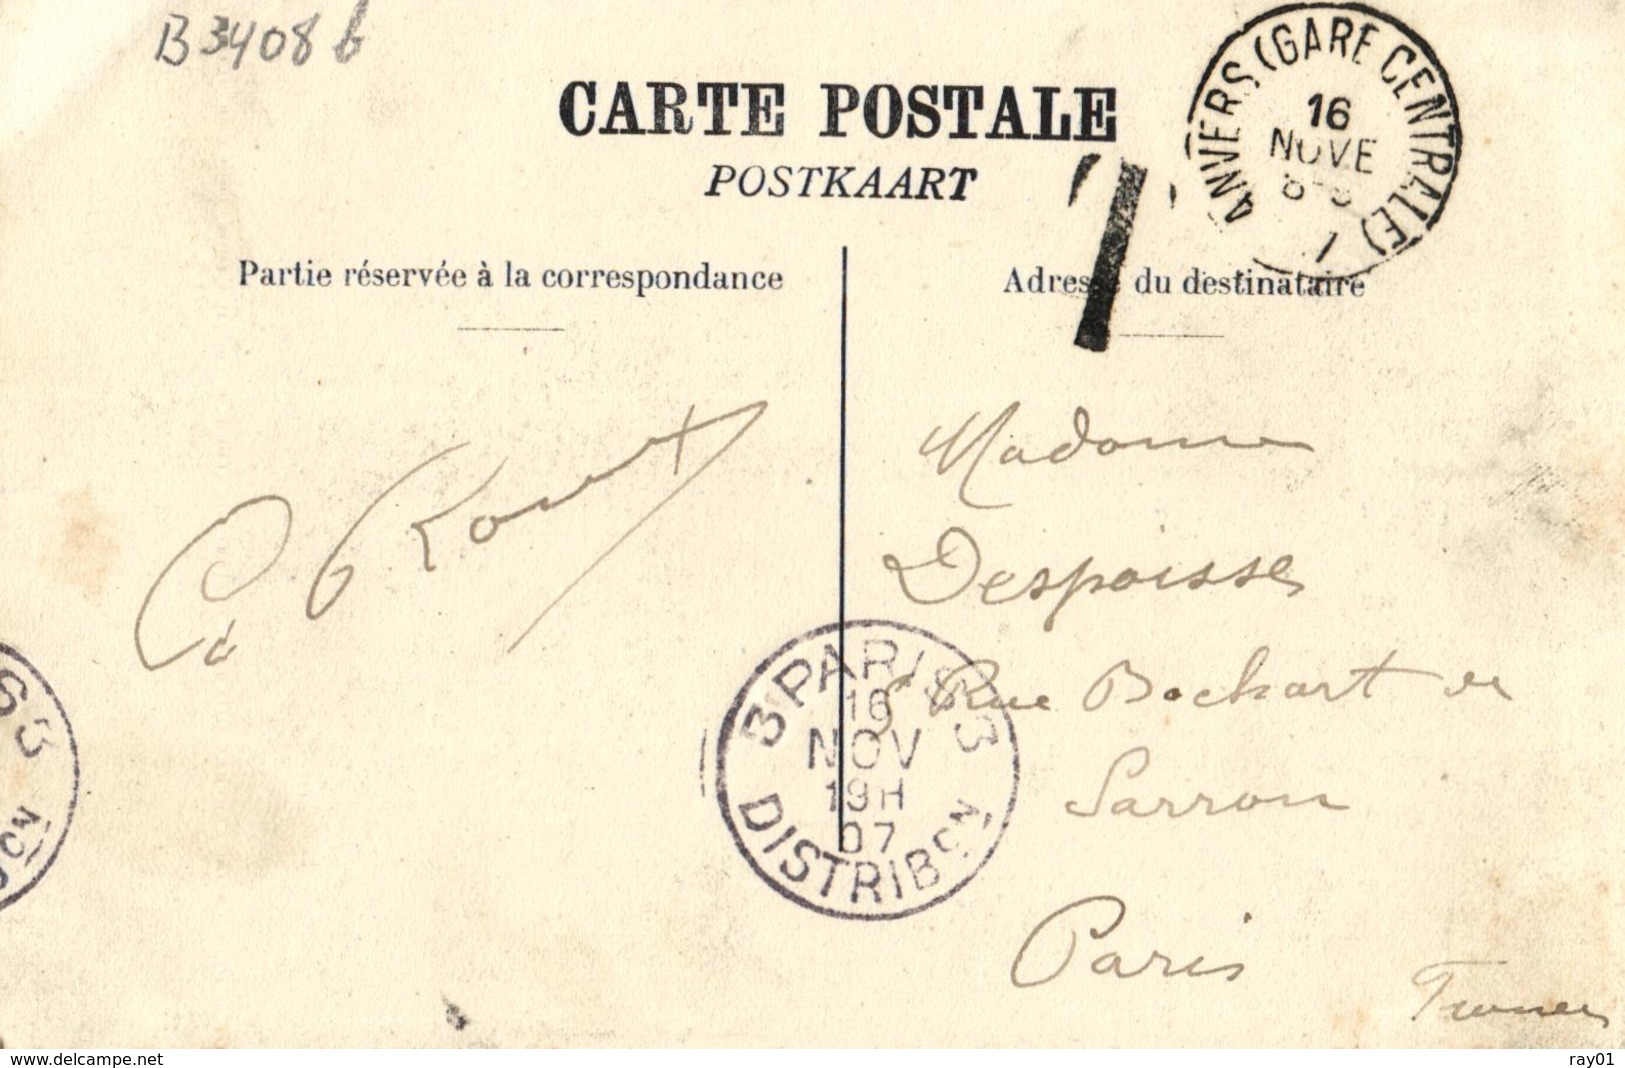 B 3408 b
CARTE POSTALE
POSTKAART
ANVERS (GARE CENTRALE)
16
NOVE
1
Partie réservée à la correspondance
Adresse du destinataire
T
Madame
Despoisse
8 Rue Bochart de
Sarron
Paris
France
3 PARIS 3
16
NOV
19H
07
DISTRIBON
S 3
ON
www.delcampe.net
ray01